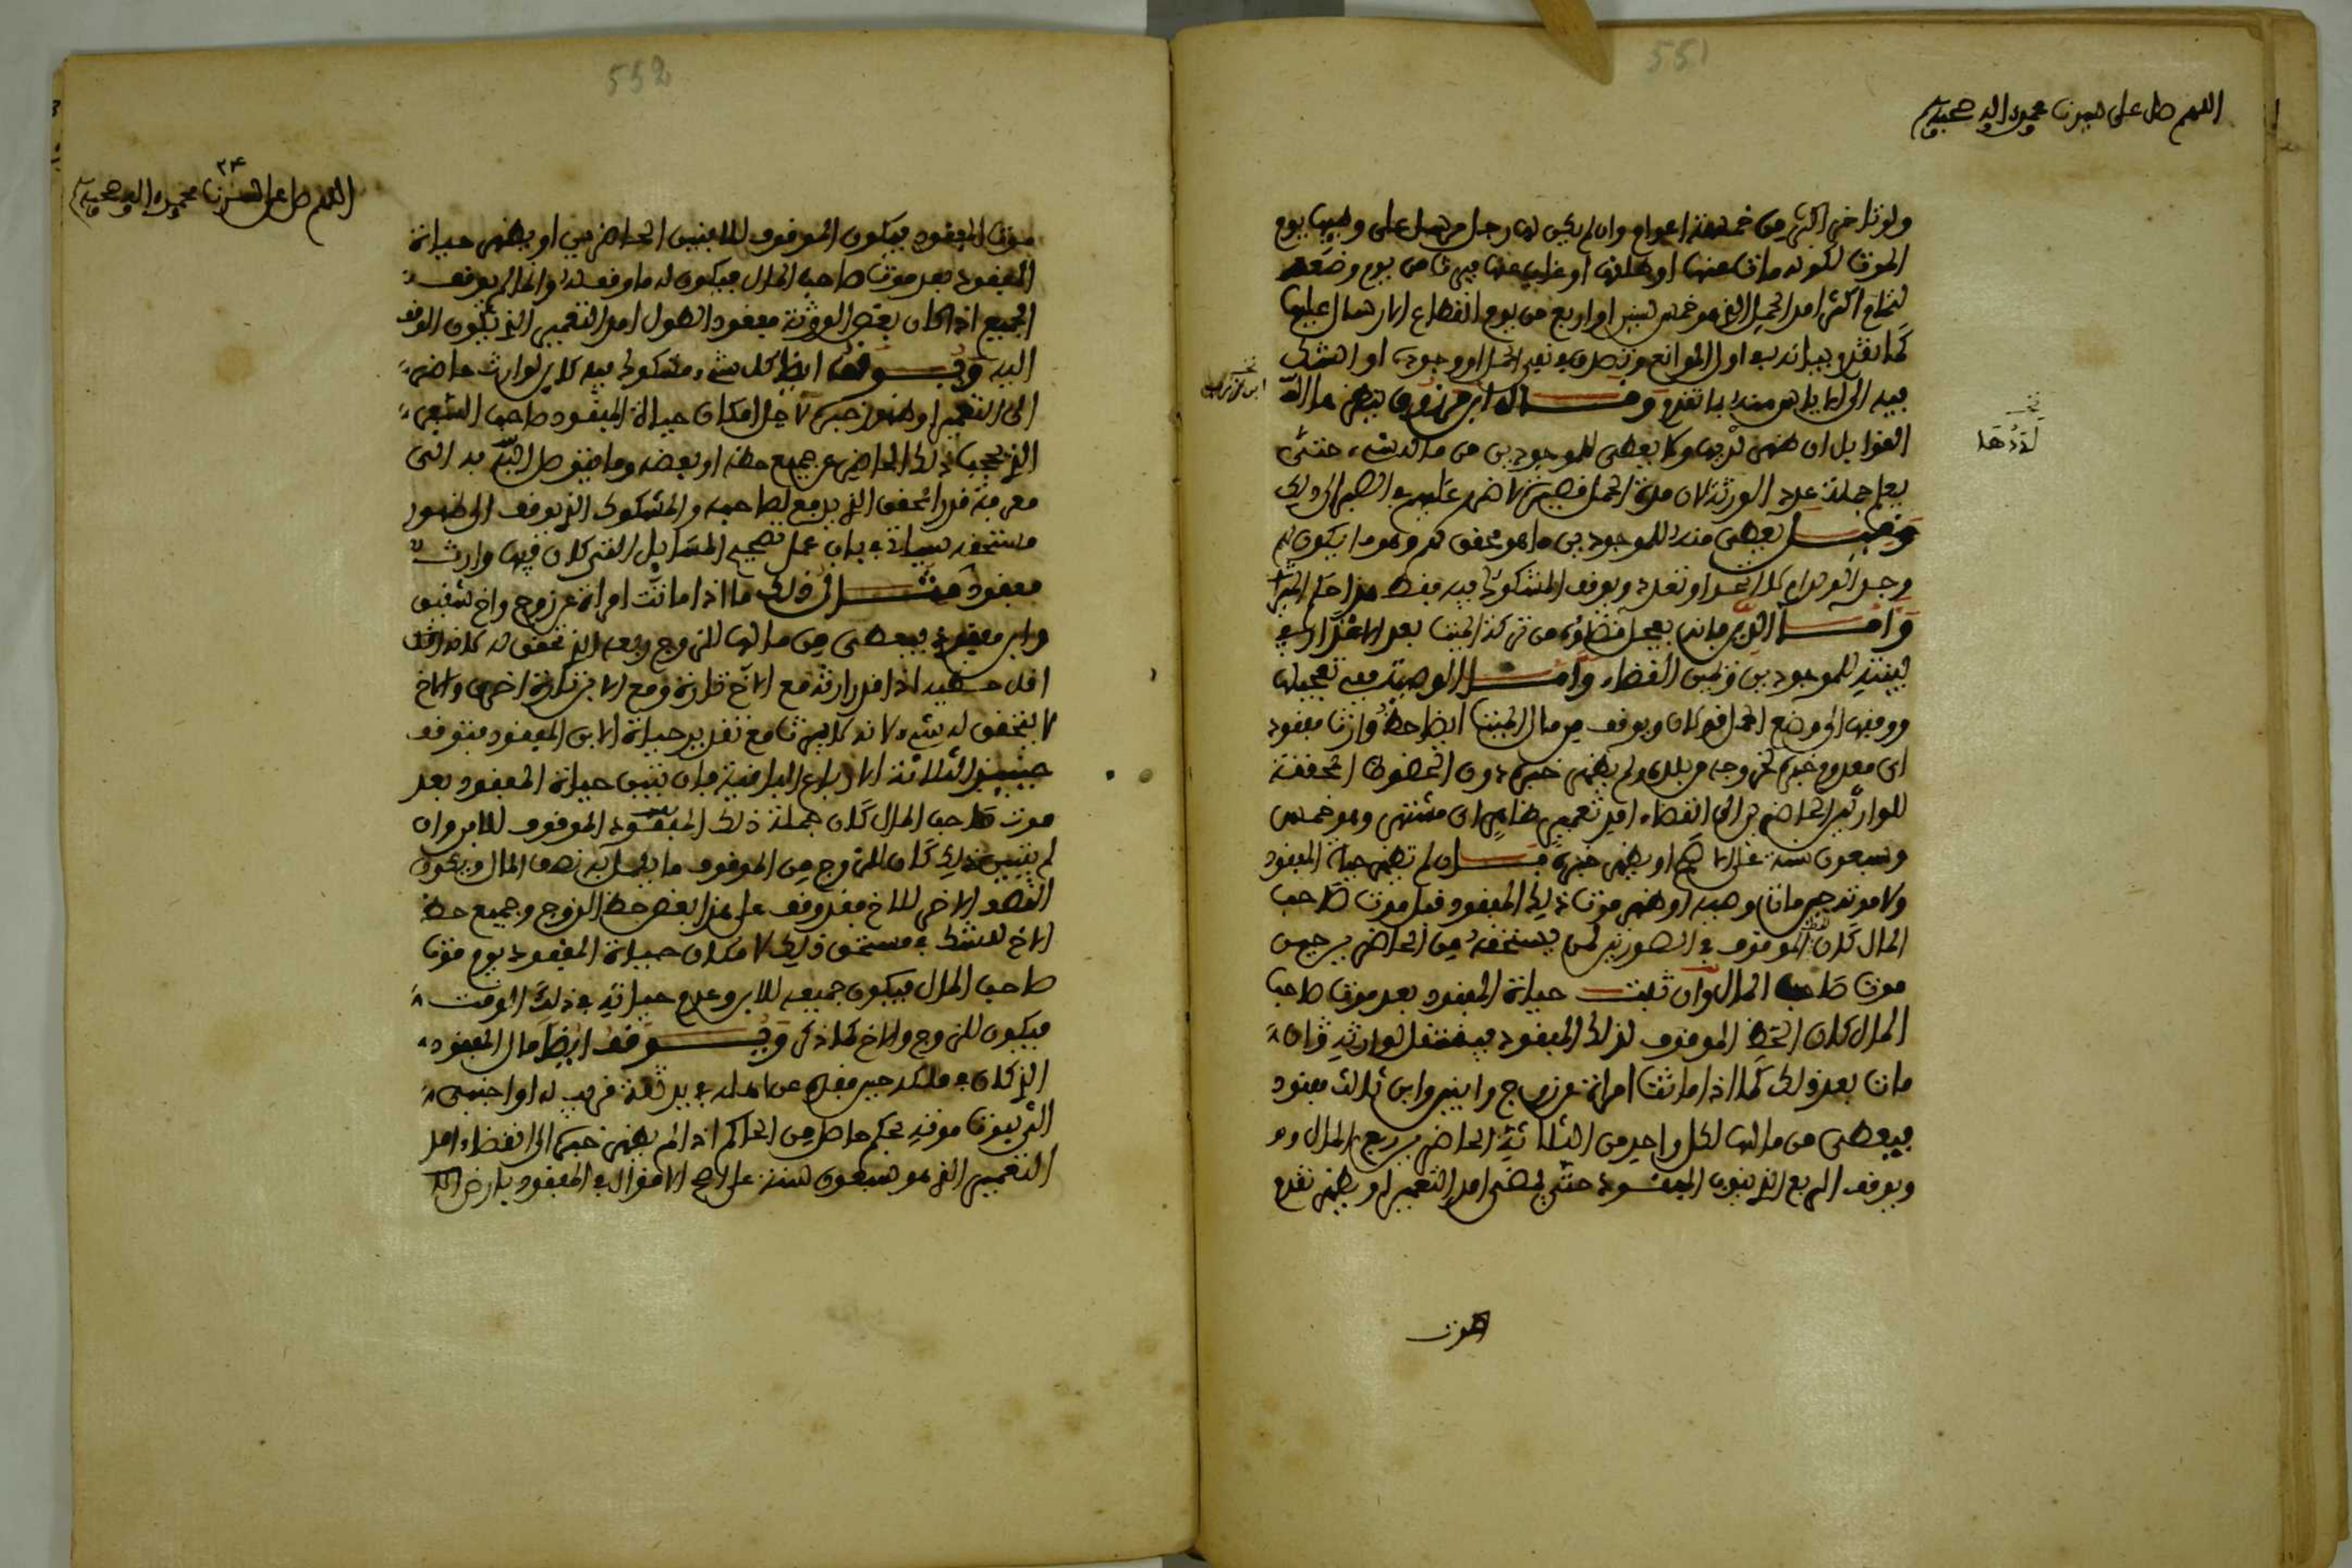 551
اللهم صل على سيدنا محمد وآله وصحبه وسلم
ولو تاخر اكثر من خمسة اعوام وان لم يكن لها رجل مرسل على وجهها يوم
الموت لكونه مات عنها او طلقها او غاب عنها فيرث من يوم وضعه
لتمام اكثر امد الحمل الذي هو خمس سنين او اربع من يوم انقطاع الارسال عليها
كما تقدم بيانه في اول الموانع وتصدق في نفي الحمل او وجوده او الشك
فيه الى الاياس منه بما تقدم وقال ابن مرزوق ينظر حالة
القوابل ان ظهر لديها ولا يعطى للموجودين من ماله شيء حتى
يعلم جملة عدد الورثة لان مدة الحمل قصيرة لا ضرر عليهم في الصبر الى ذلك
وقيل يعطى منه للموجودين ما هو محقق لهم وهو ما يكون لهم
وجد الولد ام لا اتحد او تعدد ويوقف المشكوك فيه فقط
واما الدين فانه يعجل قضاؤه من تركة الميت بعد الاعذار فيه
لبينته للموجودين وليس القضاء واما الوصية ففي تعجيلها
ووقفها الى وضع الحمل قولان ويوقف من مال الميت ايضا حظ وارث مفقود
اي معدوم خبره لخروجه من بلده ولم يظهر خبره دون الحظوظ المحققة
للوارثين الحاضرين الى انقضاء امد تعميره ظاهر ان مشتهر وهو خمس
وسبعون سنة على الاصح او يظهر خبره فان لم تظهر حياة المفقود
ولا موته حين مات وهبه او ظهر موت ذلك المفقود قبل موت صاحب
المال كان الموقوف في الصورتين لمن يستحقه من الحاضرين حين
موت صاحب المال وان ثبت حياة المفقود بعد موت صاحب
المال كان الحظ الموقوف لذلك المفقود فينتقل لوارثه وان
مات بعد ذلك كما اذا ماتت امراة عن زوج وابنين وابن ثالث مفقود
فيعطى من مالها لكل واحد من الثلاثة الحاضرين ربع المال و
ويوقف الربع الذي ينوب المفقود حتى يمضي امد التعمير او يظهر تقدم
لددها
موت
552
٣٤
اللهم صل على سيدنا محمد وآله وصحبه وسلم
موت المفقود فيكون الموقوف للابنين الحاضرين او يظهر حياة
المفقود بعد موت صاحب المال فيكون له ما وقف له وانما لم يوقف
الجميع اذا كان بعض الورثة مفقودا لطول امد التعمير الذي يكون الوقف
اليه ويوقف ايضا كل شيء مشكوك فيه كاين لوارث حاضر
الى التعمير او ظهور خبره لاجل امكان حياة المفقود صاحب التعمير
الذي يحجب ذلك الحاضر عن جميع حظه او بعضه وما يتوصل اليه به الى
معرفة قدر المحقق الذي يدفع لصاحبه والمشكوك الذي يوقف الى ظهور
مستحقه سياتي في باب عمل تصحيح المسايل التي كان فيها وارث
مفقود مثال ذلك ما اذا ماتت امراة عن زوج واخ شقيق
وابن مفقود فيعطى من مالها للزوج ربعه الذي تحقق له لانه اقل
اقل حظيه اذ قدر ارثه مع الاخ تارة ومع الابن تارة اخرى والاخ
لا يتحقق له شيء لانه لا يرث مع تقدير حياة الابن المفقود فتوقف
حينئذ الثلاثة الارباع الباقية فان تبين حياة المفقود بعد
موت صاحب المال كان جملة ذلك المفقود الموقوف للابن وان
لم يتبين ذلك كان للزوج من الموقوف ما يكمل به نصف المال ويكون
النصف الاخر للاخ فقد وقف على هذا بعض حظ الزوج وجميع حظ
الاخ للشك في مستحق ذلك لامكان حياة المفقود يوم موت
صاحب المال فيكون جميعه للابن وعدم حياته في ذلك الوقت
فيكون للزوج والاخ كما ذكر ويوقف ايضا مال المفقود
الذي كان في ملكه حين فقده عن اهله في يد ثقة قريب له او اجنبي
الى ثبوت موته بحكم حاصل من الحاكم اذا لم يظهر خبره الى انقضاء امد
التعمير الذي هو سبعون سنة على اصح الاقوال في المفقود بارض